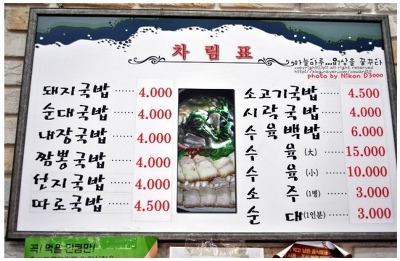 차림표
하늘하루..
photo by Nikon D3000
돼지국밥 4.000
순대국밥 4.000
내장국밥 4.000
짬뽕국밥 4.000
선지국밥 4.000
따로국밥 4.500
소고기국밥 4.500
시락국밥 4.000
수육백밥 6.000
수육(大) 15.000
수육(小) 10.000
소주(1병) 3.000
순대(1인분) 3.000